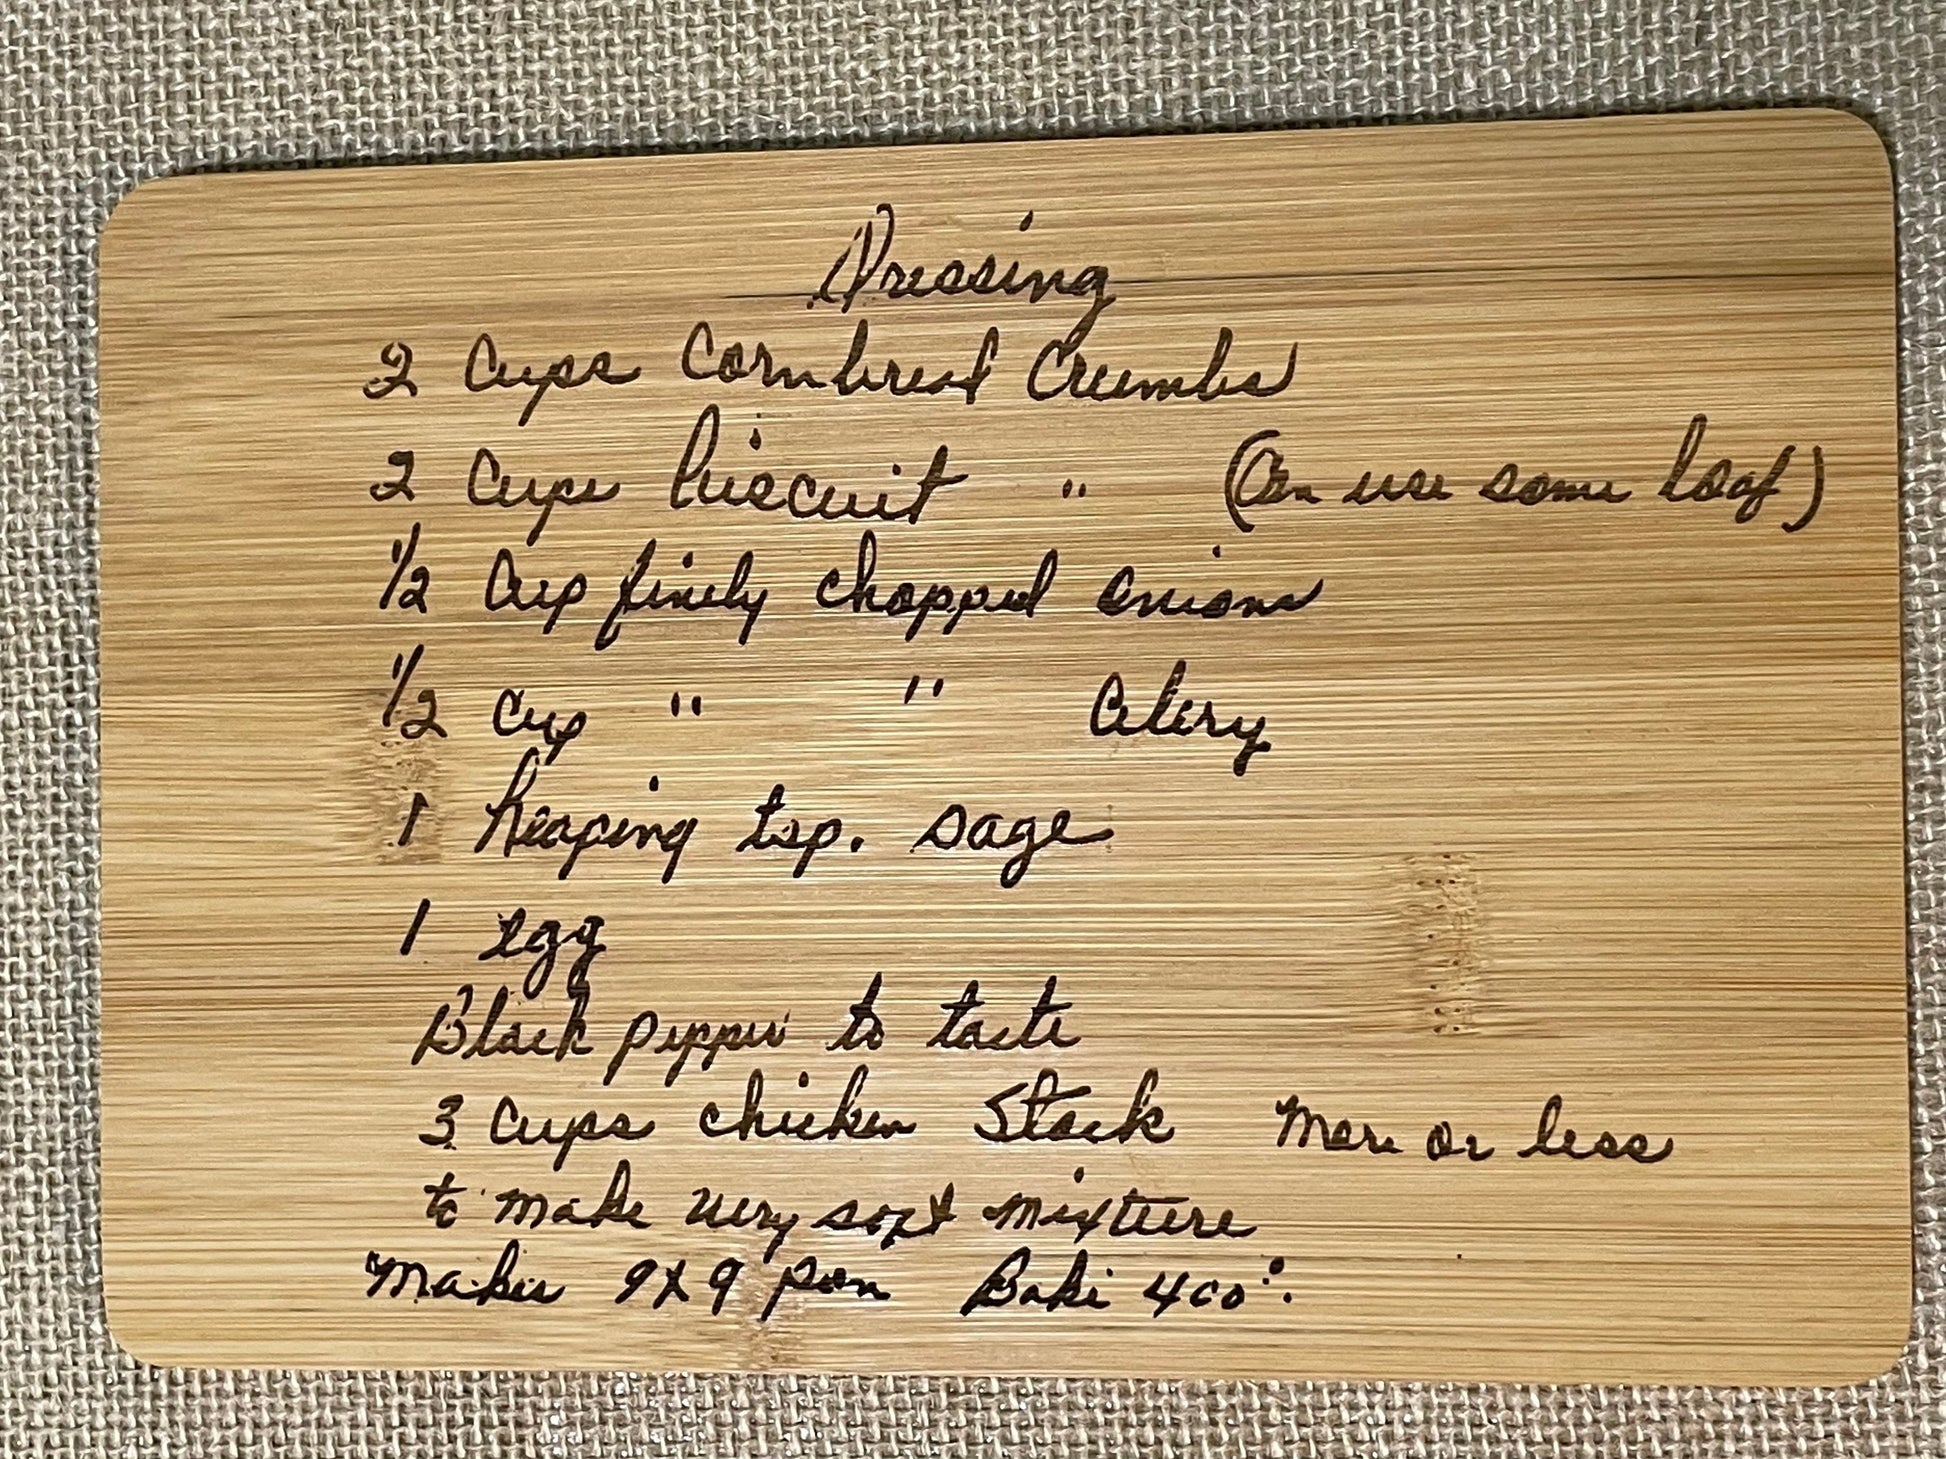 Dressing
2 Cups Cornbread Crumbs
2 Cups biscuit " (Can use some loaf)
1/2 Cup finely chopped onions
1/2 Cup " " Celery
1 heaping tsp. sage
1 egg
Black pepper to taste
3 Cups chicken Stock More or less
to make very soft mixture
Makes 9x9 pan Bake 400°.